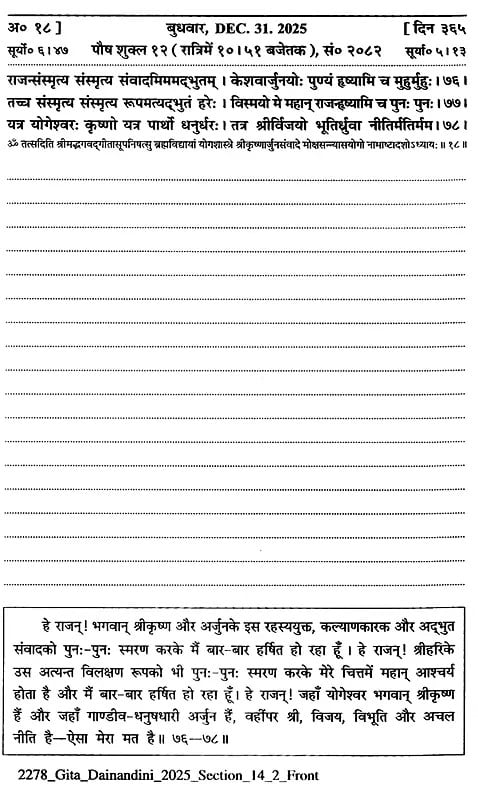 अ० १८ ] बुधवार, DEC. 31. 2025 [ दिन ३६५
सूर्यो० ६।४७ पौष शुक्ल १२ ( रात्रिमें १०।५१ बजेतक ), सं० २०८२ सूर्या० ५।१३
राजन्संस्मृत्य संस्मृत्य संवादमिममद्भुतम् । केशवार्जुनयोः पुण्यं हृष्यामि च मुहुर्मुहुः।७६।
तच्च संस्मृत्य संस्मृत्य रूपमत्यद्भुतं हरेः। विस्मयो मे महान् राजन्हृष्यामि च पुनः पुनः।७७।
यत्र योगेश्वरः कृष्णो यत्र पार्थो धनुर्धरः। तत्र श्रीर्विजयो भूतिर्ध्रुवा नीतिर्मतिर्मम।७८।
ॐ तत्सदिति श्रीमद्भगवद्गीतासूपनिषत्सु ब्रह्मविद्यायां योगशास्त्रे श्रीकृष्णार्जुनसंवादे मोक्षसन्न्यासयोगो नामाष्टादशोऽध्यायः॥ १८॥
हे राजन्! भगवान् श्रीकृष्ण और अर्जुनके इस रहस्ययुक्त, कल्याणकारक और अद्भुत
संवादको पुनः-पुनः स्मरण करके मैं बार-बार हर्षित हो रहा हूँ । हे राजन्! श्रीहरिके
उस अत्यन्त विलक्षण रूपको भी पुनः-पुनः स्मरण करके मेरे चित्तमें महान् आश्चर्य
होता है और मैं बार-बार हर्षित हो रहा हूँ। हे राजन्! जहाँ योगेश्वर भगवान् श्रीकृष्ण
हैं और जहाँ गाण्डीव-धनुषधारी अर्जुन हैं, वहींपर श्री, विजय, विभूति और अचल
नीति है—ऐसा मेरा मत है॥ ७६—७८॥
2278_Gita_Dainandini_2025_Section_14_2_Front